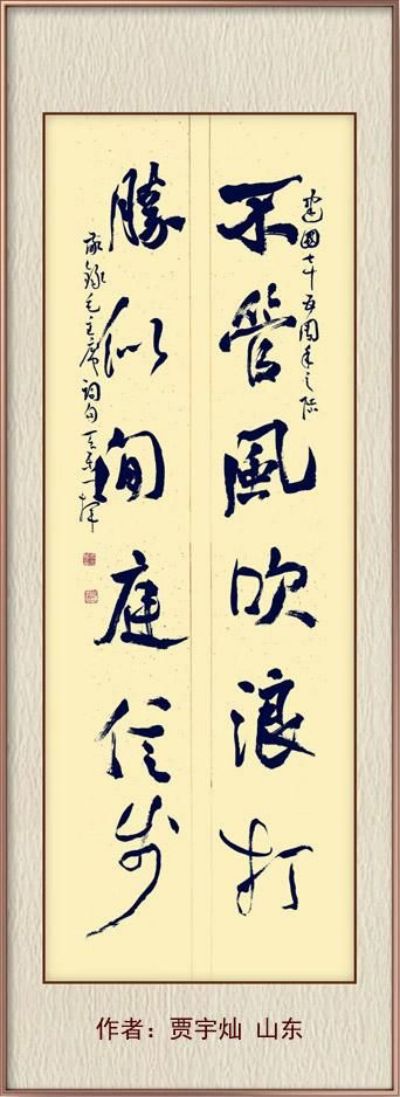 建國七十五周年之際
不管風吹浪打
勝似閒庭信步
敬錄毛主席詞句
作者：贾宇灿 山东